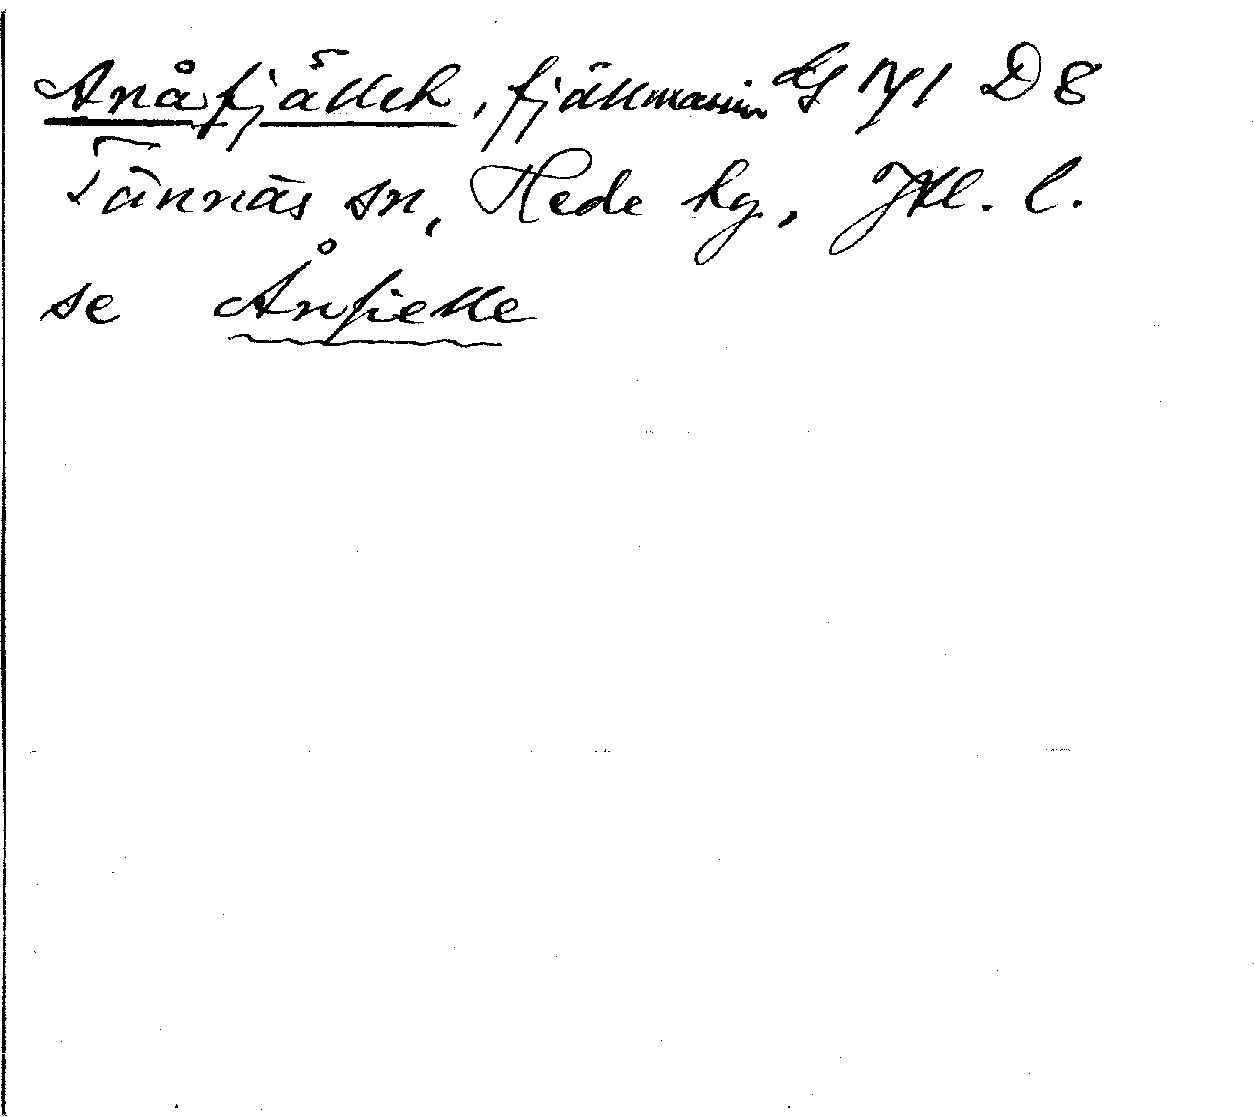 Anåfjället, fjällmassiv D 8
Tännäs sn, Hede hg, Jtl. l.
se Ånfielle